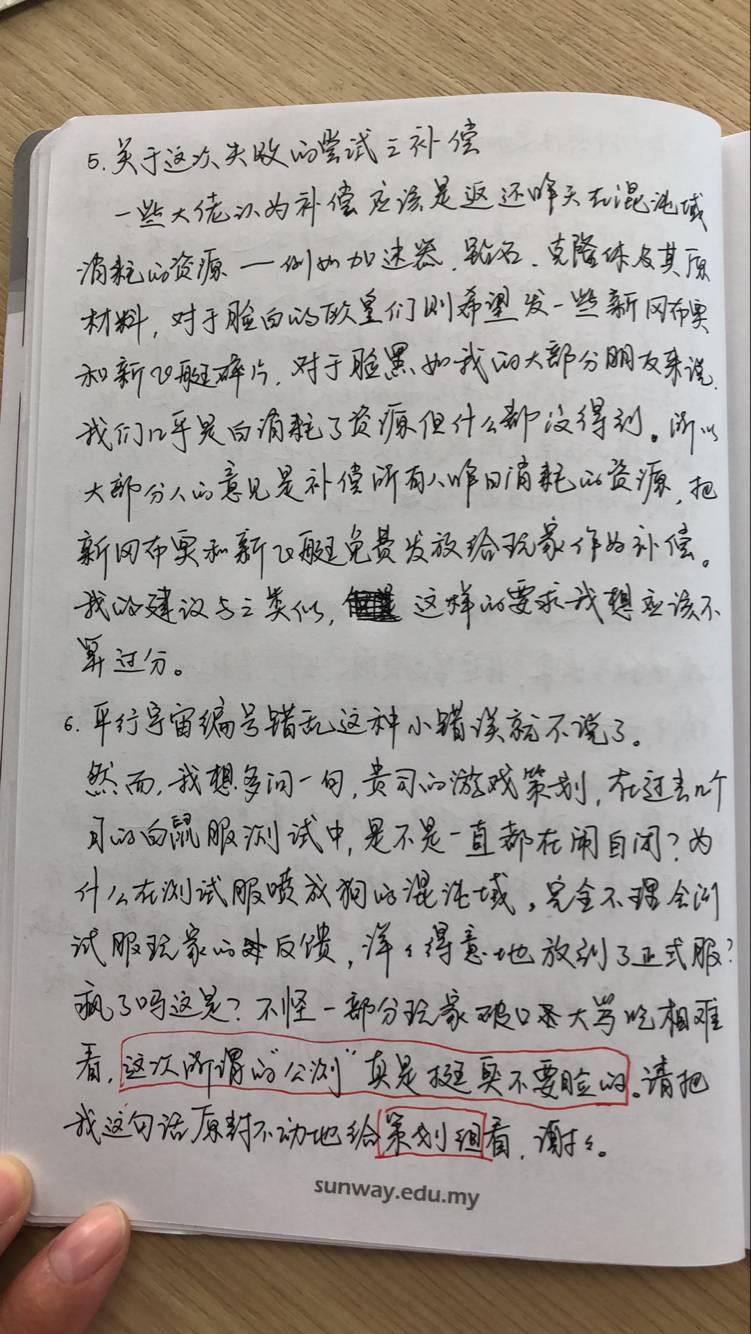 5. 关于这次失败的尝试之补偿
一些大佬认为补偿应该是返还昨天在混沌域
消耗的资源 — 例如加速器、铅石、克隆体及其原
材料，对于脸白的欧皇们则希望发一些新冈布奥
和新飞艇碎片，对于脸黑如我的大部分朋友来说，
我们几乎是白消耗了资源但什么都没得到。所以
大部分人的意见是补偿所有人昨日消耗的资源，把
新冈布奥和新飞艇免费发放给玩家作为补偿。
我的建议与之类似，这样的要求我想应该不
算过分。
6. 平行宇宙编号错乱这种小错误就不说了。
然而，我想多问一句，贵司的游戏策划，在过去几个
月的白鼠服测试中，是不是一直都在闹自闭？为
什么在测试服喷成狗的混沌域，完全不理会测
试服玩家的反馈，洋々得意地放到了正式服？
疯了吗这是？不怪一部分玩家破口大骂吃相难
看，这次所谓的“公测”真是挺臭不要脸的。请把
我这句话原封不动地给策划组看，谢々。
sunway.edu.my